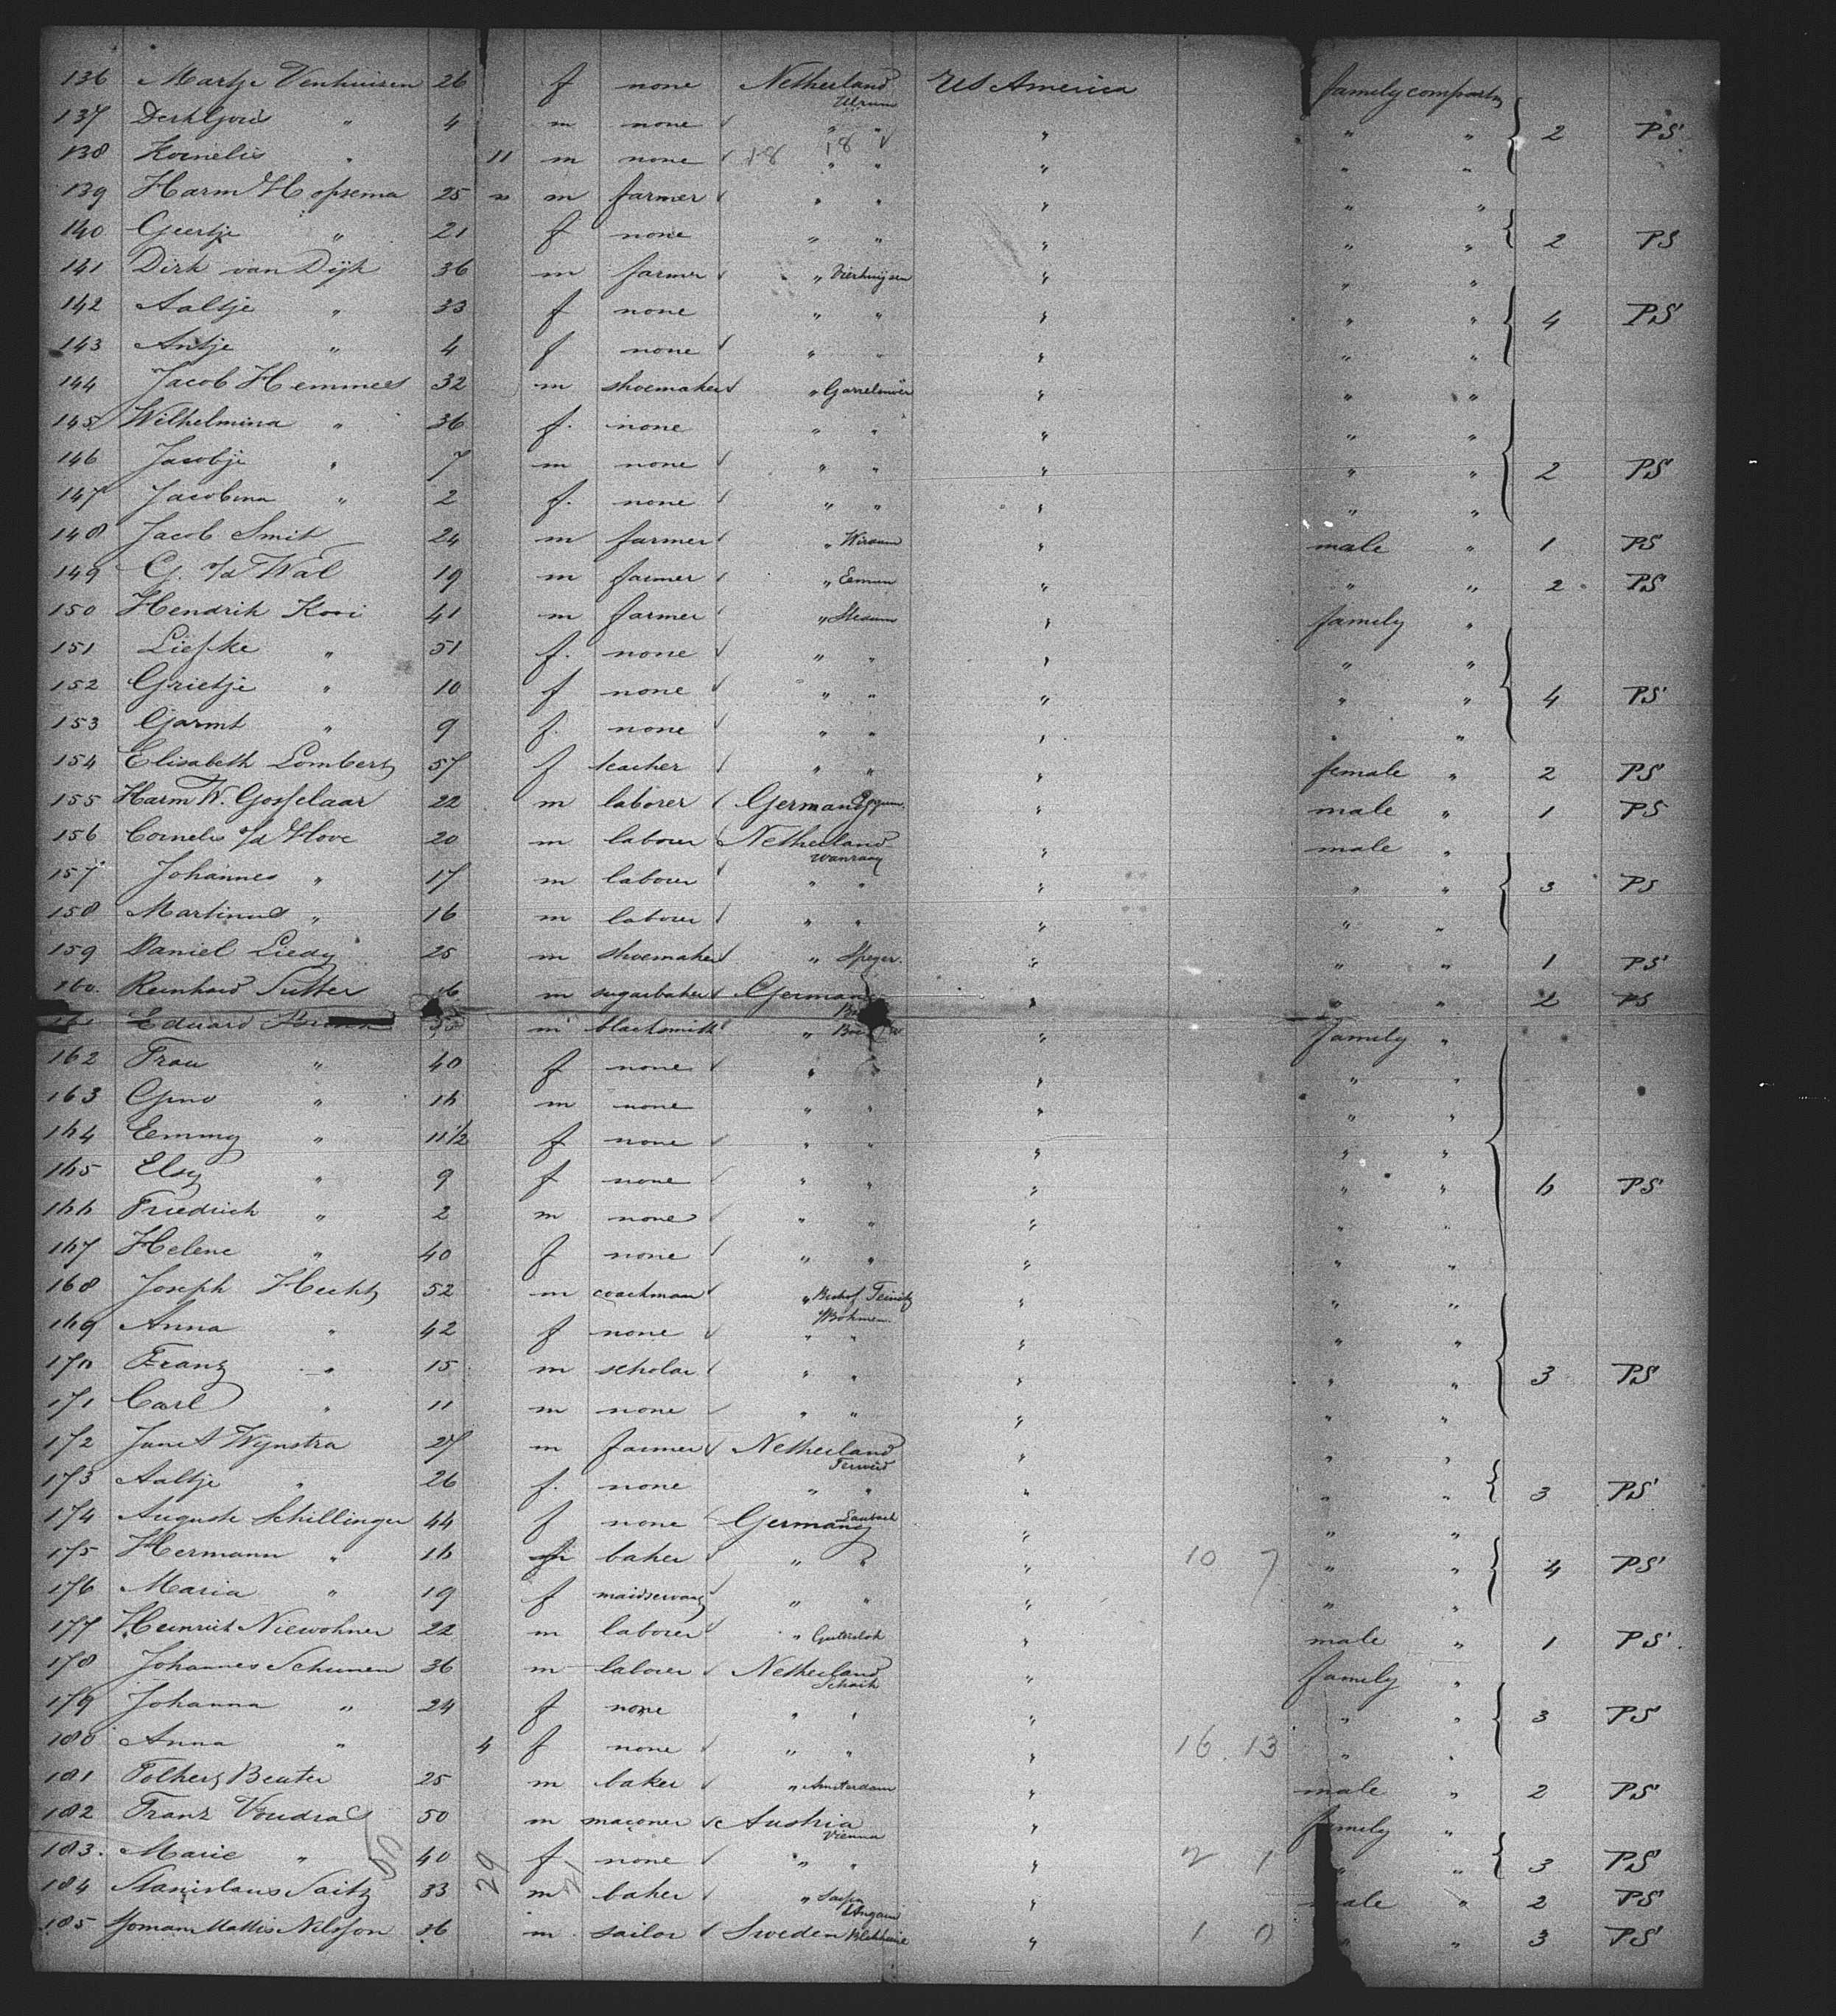 136 Martje Venhuisen 26 f none Netherland Ulrum US America family compartm
137 Derk " 4 m none " " " " " 2 PS
138 Kornelis " 11 m none 18 18 " " " " "
139 Harm Hopsema 25 m farmer " " " " "
140 Geertje " 21 f none " " " " " 2 PS
141 Dirk van Dijk 36 m farmer " Vierhuijsen " " "
142 Aaltje " 33 f none " " " " " 4 PS
143 Antje " 4 f none " " " " "
144 Jacob Hemmees 32 m shoemaker " Garrelsweer " " "
145 Wilhelmina " 36 f. none " " " " "
146 Jacobje " 7 m none " " " " " 2 PS
147 Jacobina " 2 f. none " " " " "
148 Jacob Smit 24 m farmer " Wirdum " male " 1 PS
149 G. v/d Wal 19 m farmer " Eenum " " " 2 PS
150 Hendrik Kooi 41 m farmer " Stedum " family "
151 Liefke " 51 f. none " " " " "
152 Grietje " 10 f none " " " " " 4 PS
153 Garmt " 9 f. none " " " " "
154 Elisabeth Lombertz 57 f teacher " " " female " 2 PS
155 Harm W. Gosselaar 22 m laborer Germany " male " 1 PS
156 Cornelis v/d Hove 20 m laborer Netherland Wanraaij " male "
157 Johannes " 17 m laborer " " " " " 3 PS
158 Martinus " 16 m laborer " " " " "
159 Daniel Liedy 25 m shoemaker " Speyer. " " " 1 PS
160. Reinhard Sutter 16 m sugarbaker German " " " 2 PS
Eduard m blacksmith " " family "
162 Frau " 40 f none " " " "
163 Gino " 16 m none " " " " "
164 Emmy " 11 1/2 f none " " " " "
165 Elsy " 9 f none " " " " " 6 PS
166 Friedrich " 2 m none " " " " "
167 Helene " 40 f none " " " " "
168 Joseph Hecht 52 m coachman " Bischof Teinitz " " "
169 Anna " 42 f none Böhmen " " " " "
170 Franz " 15 m scholar " " " " " 3 PS
171 Carl " 11 m none " " " " "
172 Jan A Wijnstra 27 m farmer Netherland " " "
173 Aaltje " 26 f. none " " " " " 3 PS
174 Auguste Schillinger 44 f none Germany Laubach " " "
175 Hermann " 16 m baker " " " 10 7 " " 4 PS
176 Maria " 19 f maidservant " " " " "
177 Heinrich Niewohner 22 m laborer " Gutersloh " male " 1 PS
178 Johannes Schunen 36 m laborer Netherland Schaik " family "
179 Johanna " 24 f none " " " " " 3 PS
180 Anna " 4 f none " " " 16. 13 " "
181 Folkert Beuter 25 m baker " Amsterdam " male " 2 PS
182 Franz Voudrac 50 m maconer Austria Vienna " family "
183. Marie " 40 29 f none " " " 2 1 " " 3 PS
184 Stanislaus Saitz 33 m baker " Ungarn " male " 2 PS
185 Mattis Nilsson 36 m sailor Sweden " 1 0 " " 3 PS